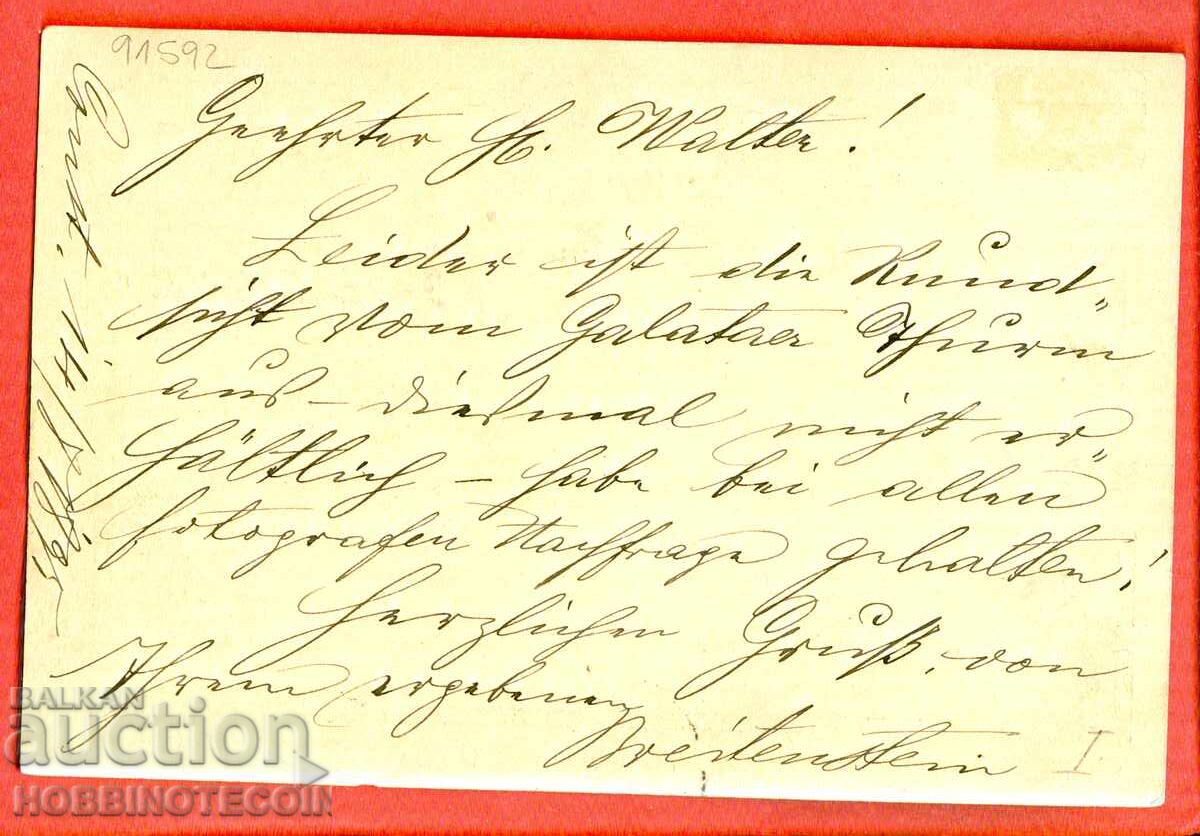 91592
Const. 14/8 189
Geehrter H. Walter!
Leider ist die Rund„
sicht vom Galataer Thurm
aus – diesmal nicht er„
hältlich – habe bei allen
Fotografen Nachfrage gehalten!
Herzlichen Gruß von
Ihrem ergebenen
Breitenstein
I
BALKAN
auction
HOBBINOTECOIN